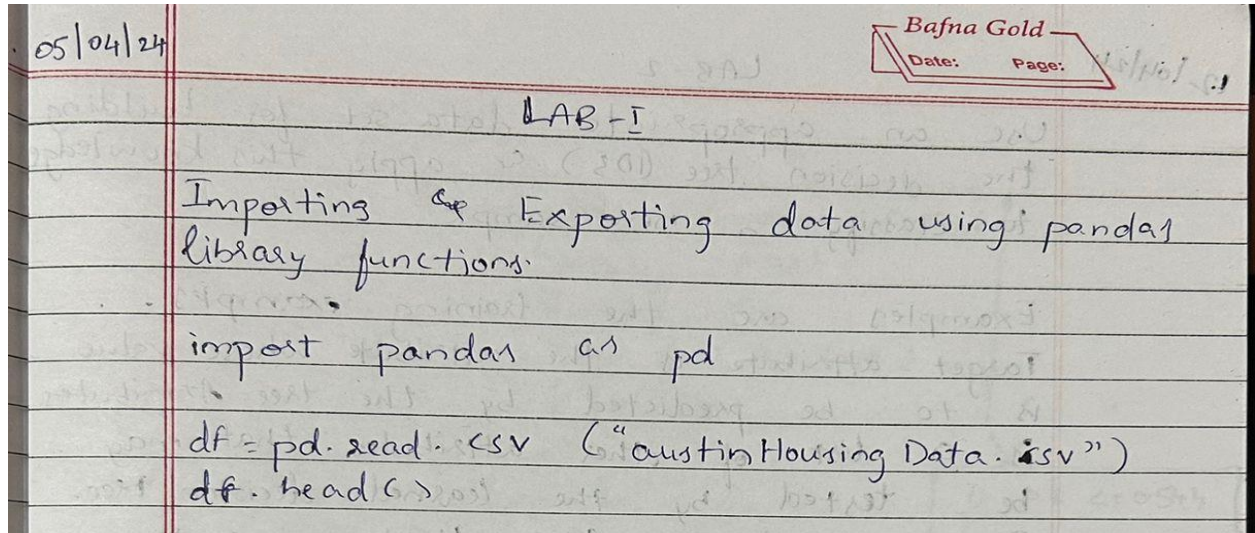 05/04/24
Bafna Gold
Date: Page:
LAB-I
Importing & Exporting data using pandas
library functions.
import pandas as pd
df = pd.read.csv ("austinHousing Data.csv")
df.head()